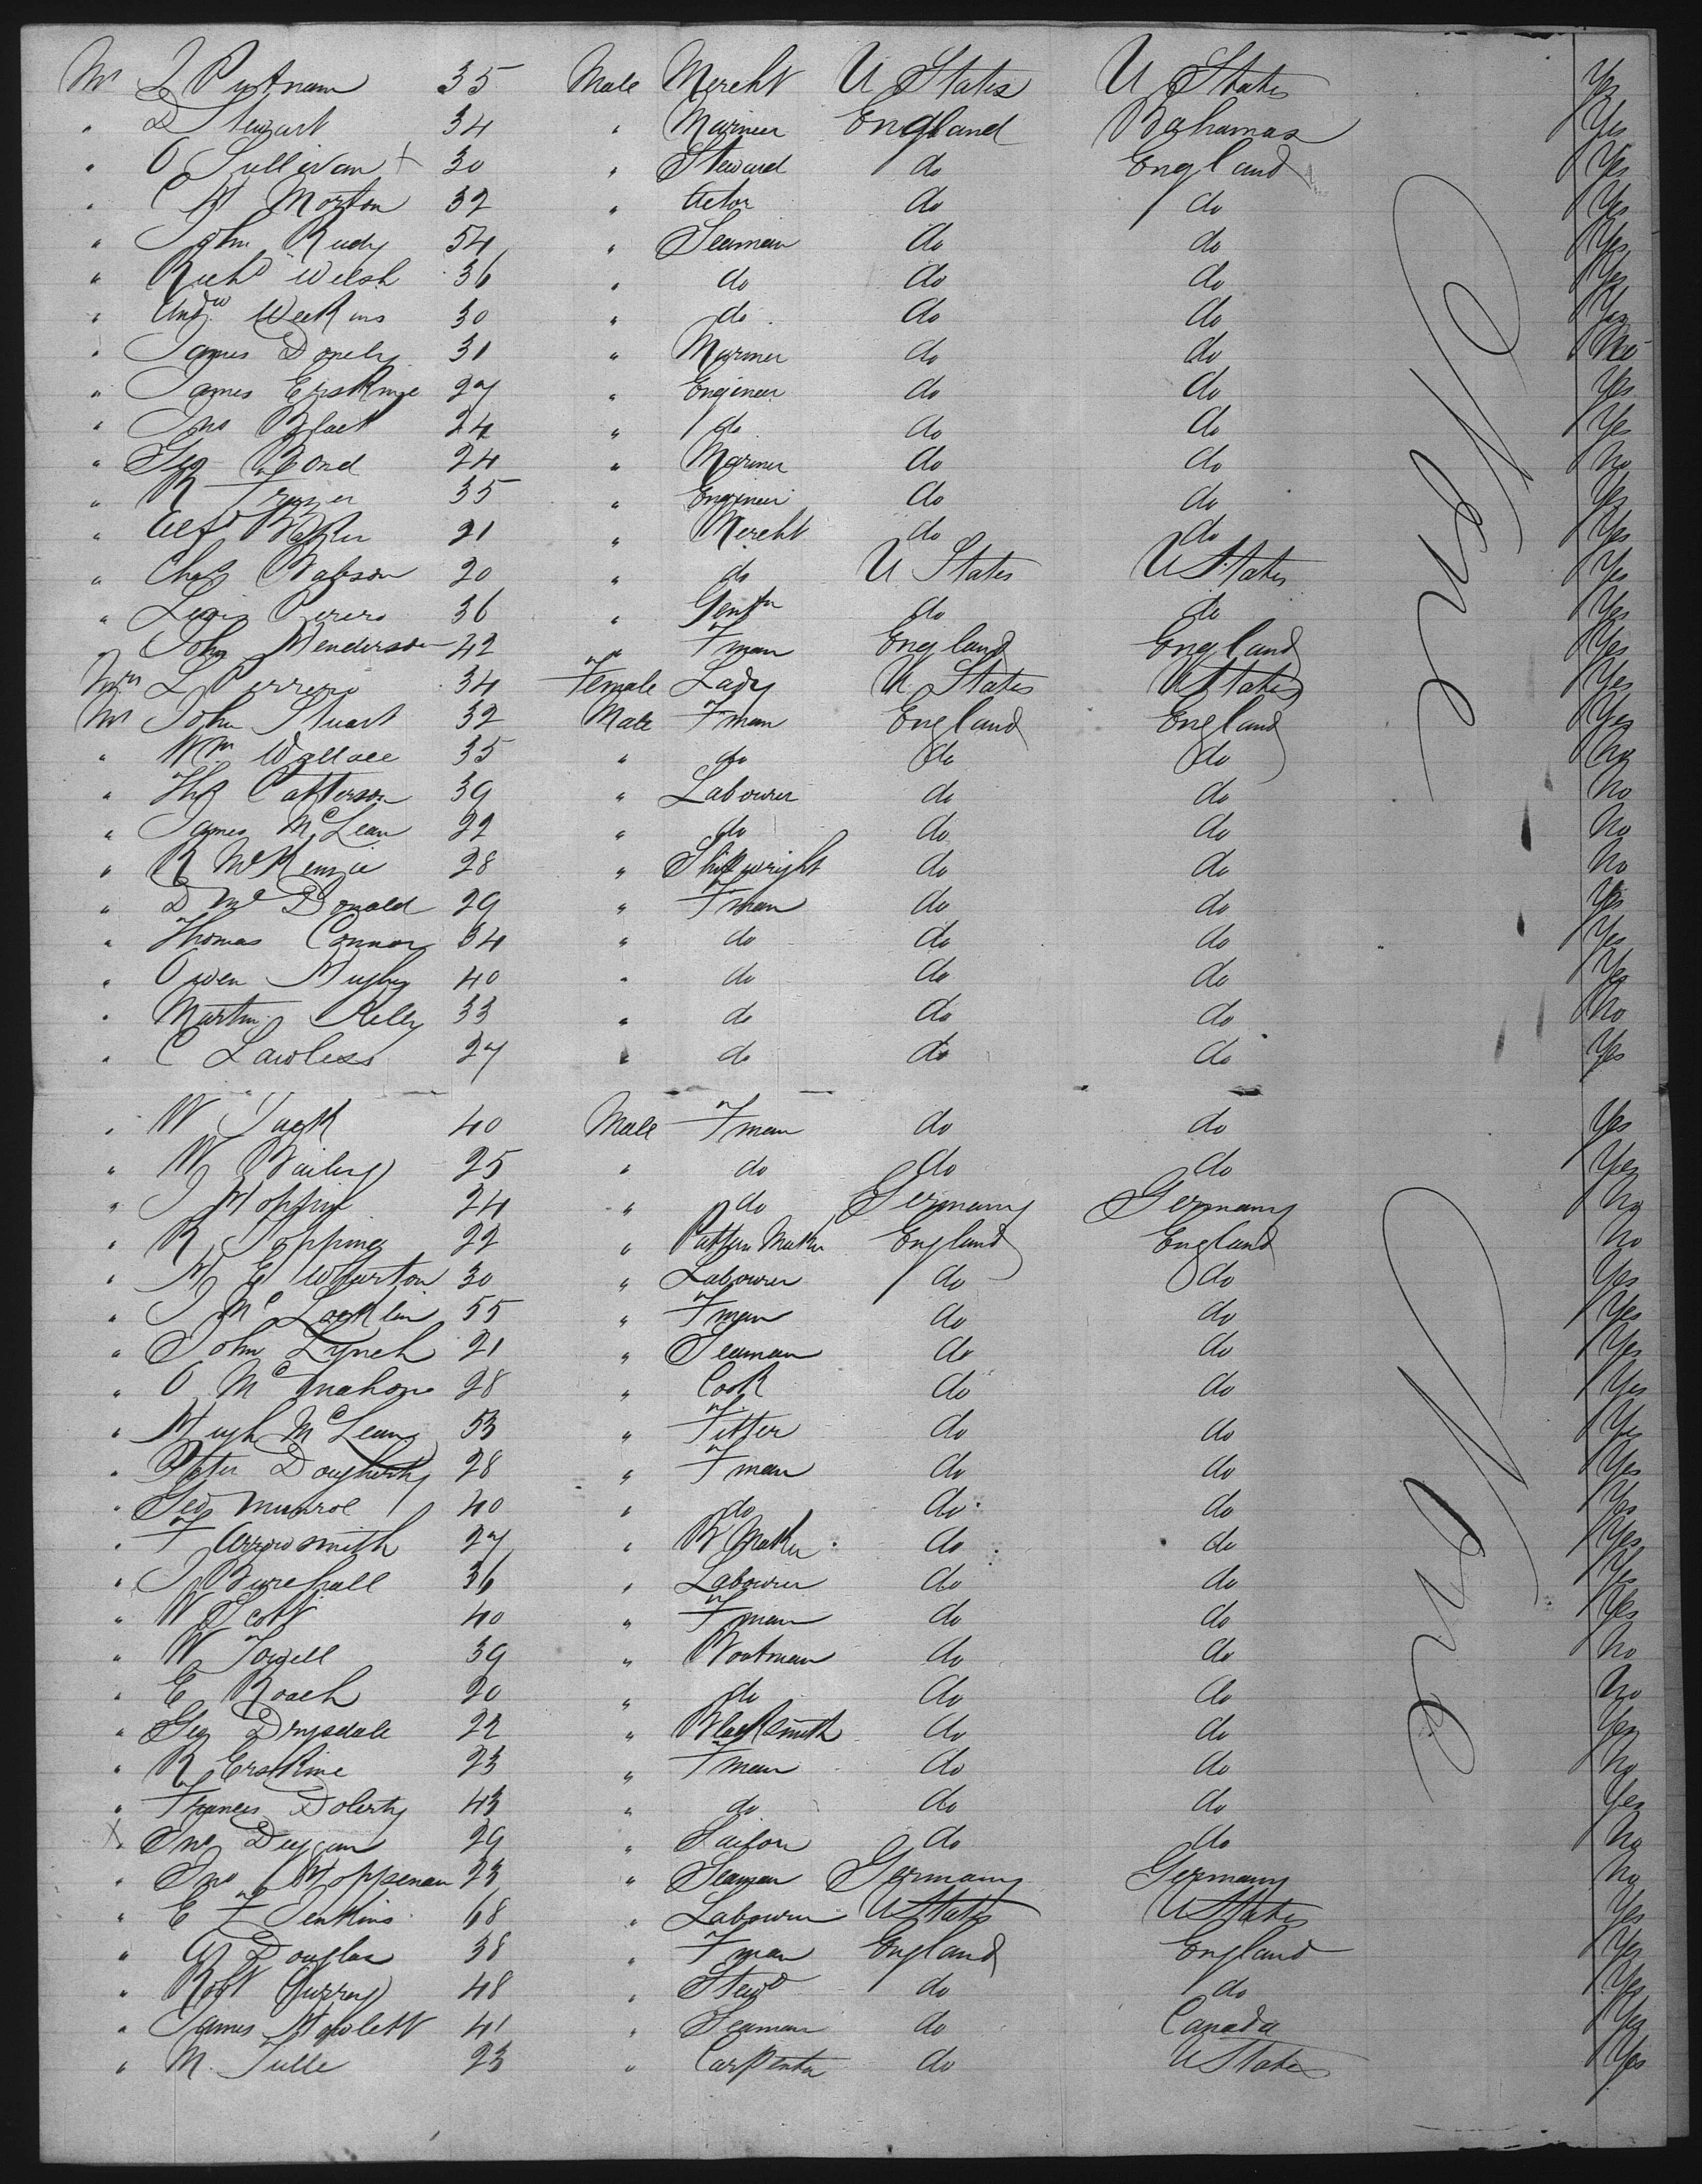 Mr J Putnam 35 Male Mercht U States U States Yes
" D Stewart 34 " Mariner England Bahamas Yes
" O Sullivan + 30 " Steward do England Yes
" C H Morton 32 " Actor do do Yes
" John Rudy 54 " Seaman do do Yes
" Richd Welsh 36 " do do do Yes
" Andw Weekins 30 " do do do Yes
" James Donely 31 " Mariner do do No
" James Erskine 27 " Engineer do do Yes
" Jno 24 " do do do Yes
" Geo Bond 24 " Mariner do do No
" R Frazer 35 " Engineer do do Yes
" Alfd 21 " Mercht do do Yes
" Chas Babson 20 " do U States U States Yes
" Lewis 36 " Gentn do do Yes
" John Henderson 42 " Fman England England Yes
Mrs L 34 Female Lady U. States U States Yes
Mr John Stuart 32 Male Fman England England Yes
" Wm Wallace 35 " do do do No
" Ths Patterson 39 " Labourer do do No
" James McLean 22 " do do do No
" R McKenzie 28 " Shipwright do do No
" D McDonald 29 " Fman do do Yes
" Thomas Connor 34 " do do do Yes
" Owen Hughy 40 " do do do Yes
" Martin Kelly 33 " do do do No
" C Lawless 27 " do do do Yes
" W Jack 40 Male Fman do do Yes
" W Bailey 25 " do do do Yes
" J 24 " do Germany Germany No
" R Topping 22 " Pattern Maker England England No
" H E Wharton 30 " Labourer do do Yes
" J McLocklen 55 " Fman do do Yes
" John Lynch 21 " Seaman do do Yes
" O McMahon 28 " Cook do do Yes
" Hugh McLean 53 " Fitter do do Yes
" Peter Dougherty 28 " Fman do do Yes
" Geo Munroe 40 " do do do Yes
" F Arrowsmith 27 " B Maker do do Yes
" J Burchall 36 " Labourer do do Yes
" W Scott 40 " Fman do do Yes
" W Towell 39 " Boatman do do No
" E Roach 20 " do do do No
" Geo Drysdale 22 " Blacksmith do do Yes
" R Erskine 23 " Fman do do No
" Francis Doherty 43 " do do do Yes
X " Jno Duggan 29 " Sailor do do No
" Jno Hoppenan 23 " Seaman Germany Germany No
" E F Jenkins 68 " Labourer U States U States Yes
" A Douglas 38 " Fman England England Yes
" Robt Currey 48 " Stewd do do Yes
" James Howlett 41 " Seaman do Canada Yes
" M. Tulle 23 " Carpenter do U States Yes
None
None